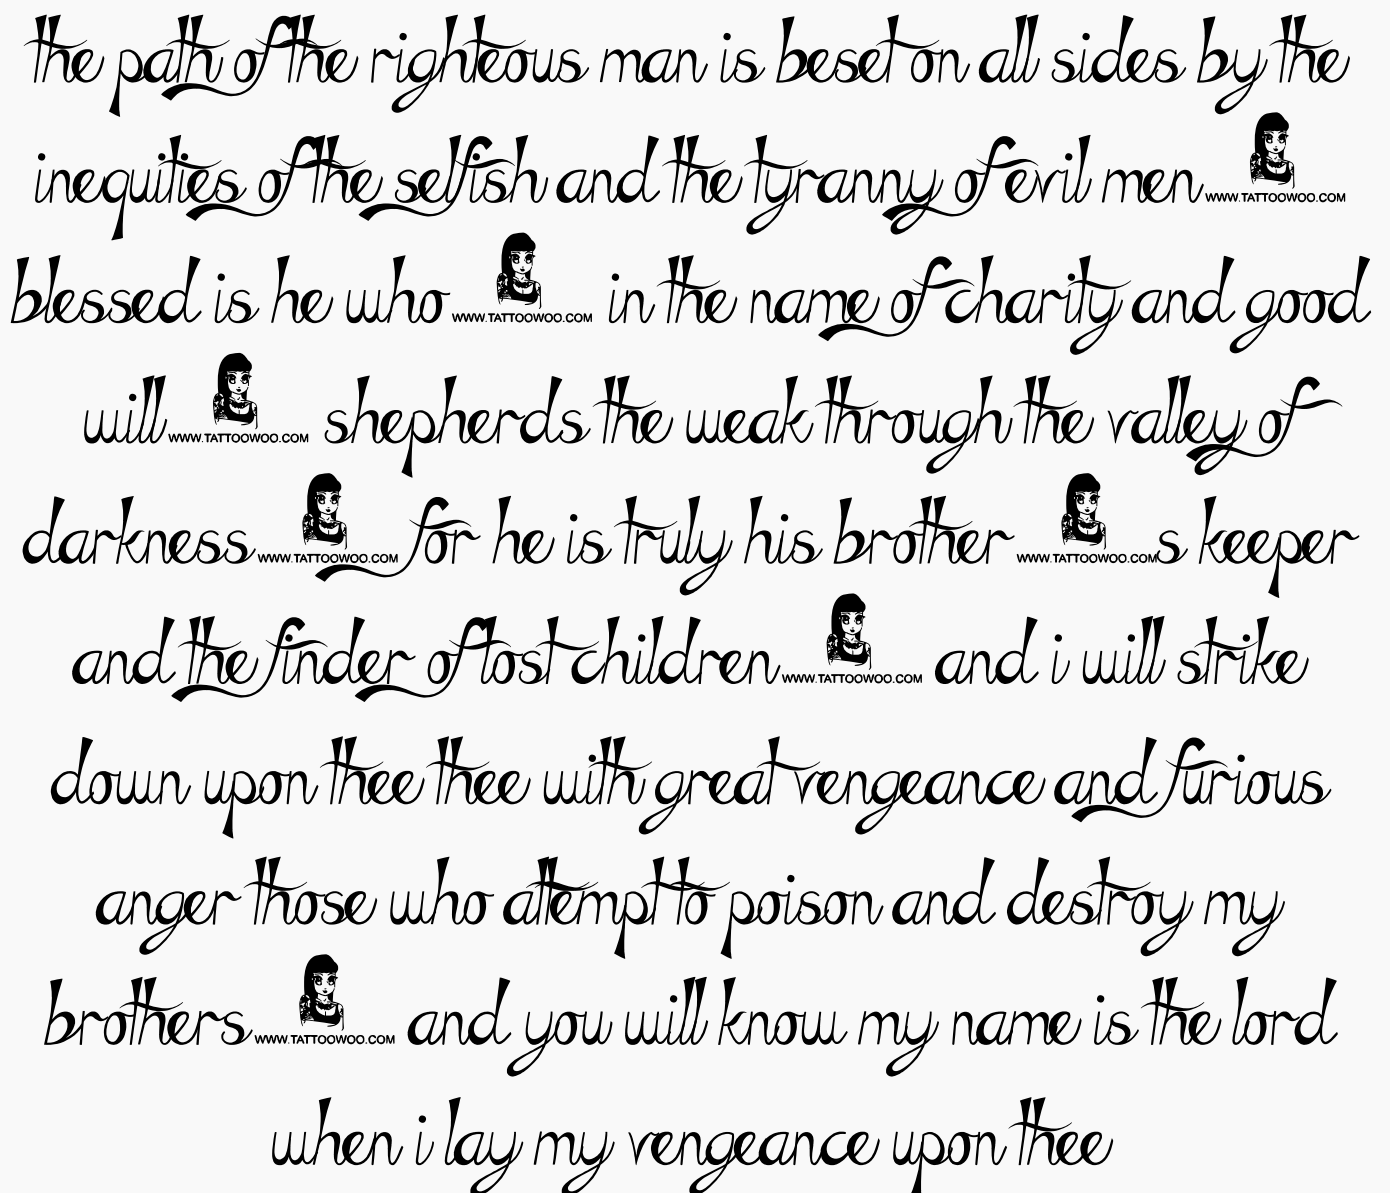 the path of the righteous man is beset on all sides by the
inequities of the selfish and the tyranny of evil men WWW.TATTOOWOO.COM
blessed is he who WWW.TATTOOWOO.COM in the name of charity and good
will WWW.TATTOOWOO.COM shepherds the weak through the valley of
darkness WWW.TATTOOWOO.COM for he is truly his brother WWW.TATTOOWOO.COM s keeper
and the finder of lost children WWW.TATTOOWOO.COM and i will strike
down upon thee thee with great vengeance and furious
anger those who attempt to poison and destroy my
brothers WWW.TATTOOWOO.COM and you will know my name is the lord
when i lay my vengeance upon thee